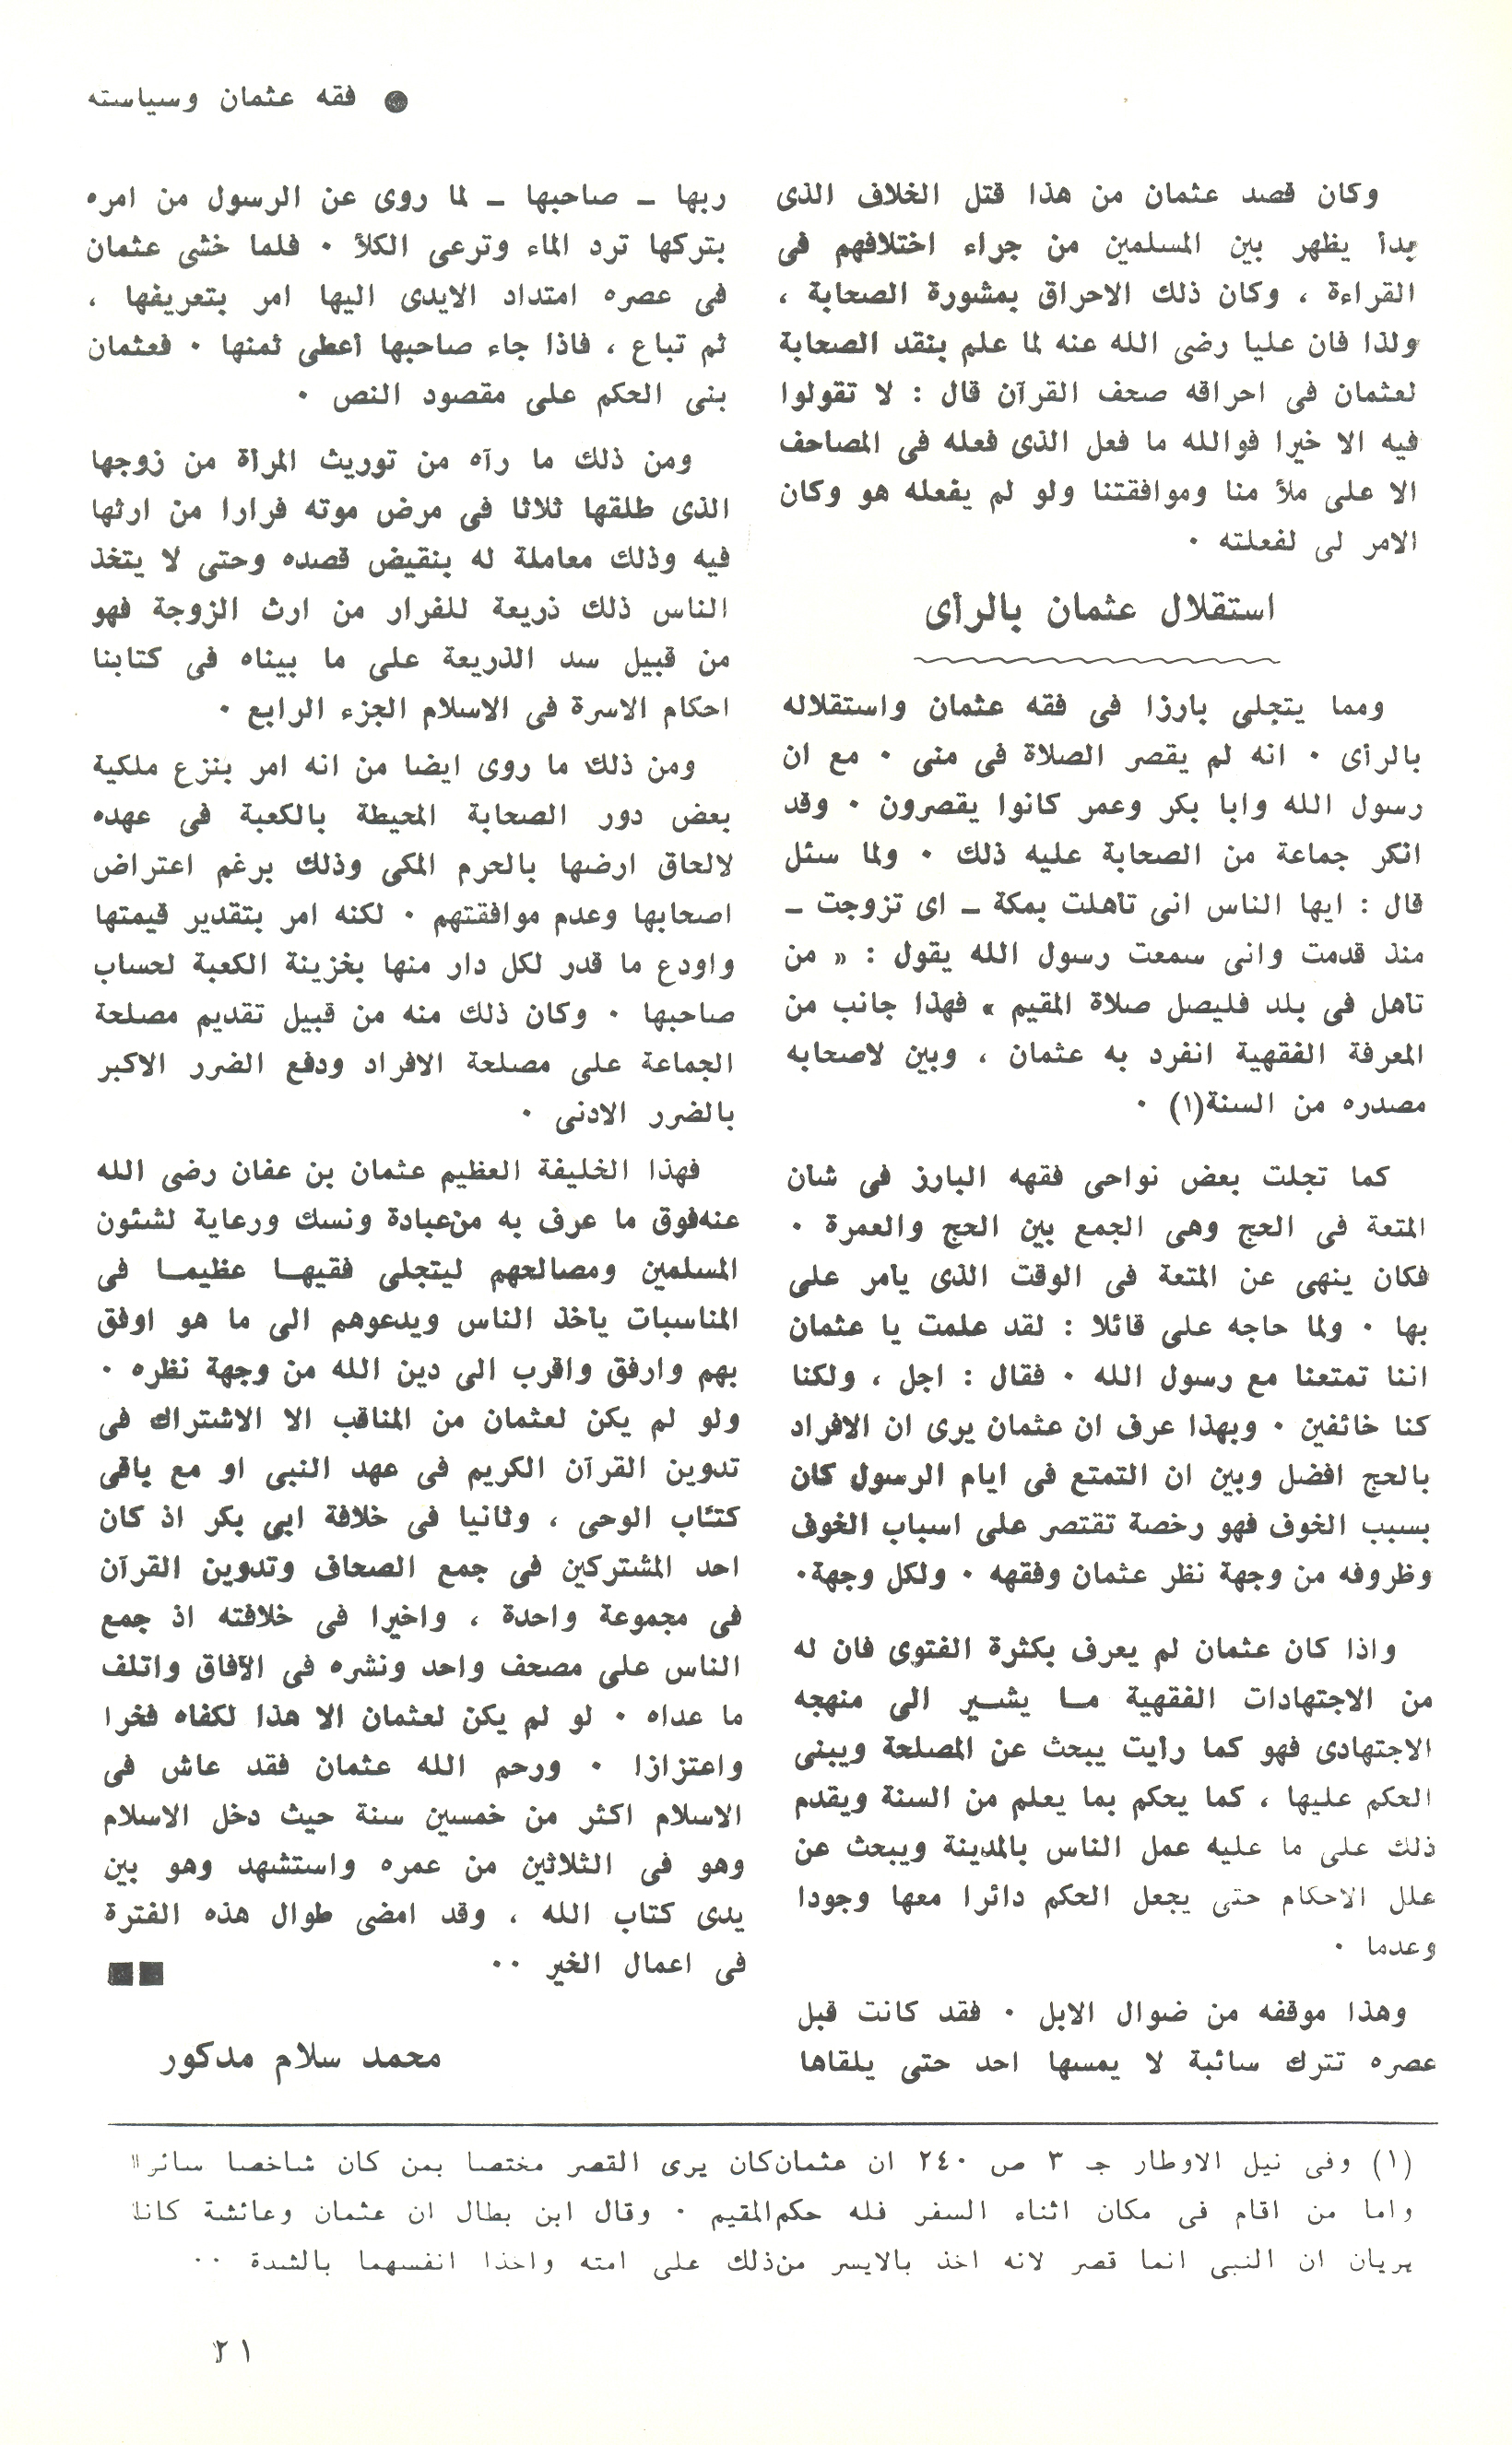 ● فقه عثمان وسياسته
وكان قصد عثمان من هذا قتل الخلاف الذى
بدأ يظهر بين المسلمين من جراء اختلافهم فى
القراءة ، وكان ذلك الاحراق بمشورة الصحابة ،
ولذا فان عليا رضى الله عنه لما علم بنقد الصحابة
لعثمان فى احراقه صحف القرآن قال : لا تقولوا
فيه الا خيرا فوالله ما فعل الذى فعله فى المصاحف
الا على ملأ منا وموافقتنا ولو لم يفعله هو وكان
الامر لى لفعلته ٠
استقلال عثمان بالرأى
ومما يتجلى بارزا فى فقه عثمان واستقلاله
بالرأى ٠ انه لم يقصر الصلاة فى منى ٠ مع ان
رسول الله وابا بكر وعمر كانوا يقصرون ٠ وقد
انكر جماعة من الصحابة عليه ذلك ٠ ولما سئل
قال : ايها الناس انى تأهلت بمكة ـ اى تزوجت ـ
منذ قدمت وانى سمعت رسول الله يقول : « من
تأهل فى بلد فليصل صلاة المقيم » فهذا جانب من
المعرفة الفقهية انفرد به عثمان ، وبين لاصحابه
مصدره من السنة(١) ٠
كما تجلت بعض نواحى فقهه البارز فى شأن
المتعة فى الحج وهى الجمع بين الحج والعمرة ٠
فكان ينهى عن المتعة فى الوقت الذى يأمر على
بها ٠ ولما حاجه على قائلا : لقد علمت يا عثمان
اننا تمتعنا مع رسول الله ٠ فقال : اجل ، ولكنا
كنا خائفين ٠ وبهذا عرف ان عثمان يرى ان الافراد
بالحج افضل وبين ان التمتع فى ايام الرسول كان
بسبب الخوف فهو رخصة تقتصر على اسباب الخوف
وظروفه من وجهة نظر عثمان وفقهه ٠ ولكل وجهة٠
واذا كان عثمان لم يعرف بكثرة الفتوى فان له
من الاجتهادات الفقهية مـا يشـير الى منهجه
الاجتهادى فهو كما رأيت يبحث عن المصلحة ويبنى
الحكم عليها ، كما يحكم بما يعلم من السنة ويقدم
ذلك على ما عليه عمل الناس بالمدينة ويبحث عن
علل الاحكام حتى يجعل الحكم دائرا معها وجودا
وعدما ٠
وهذا موقفه من ضوال الابل ٠ فقد كانت قبل
عصره تترك سائبة لا يمسها احد حتى يلقاها
ربها ـ صاحبها ـ لما روى عن الرسول من امره
بتركها ترد الماء وترعى الكلأ ٠ فلما خشى عثمان
فى عصره امتداد الايدى اليها امر بتعريفها ،
ثم تباع ، فاذا جاء صاحبها أعطى ثمنها ٠ فعثمان
بنى الحكم على مقصود النص ٠
ومن ذلك ما رآه من توريث المرأة من زوجها
الذى طلقها ثلاثا فى مرض موته فرارا من ارثها
فيه وذلك معاملة له بنقيض قصده وحتى لا يتخذ
الناس ذلك ذريعة للفرار من ارث الزوجة فهو
من قبيل سد الذريعة على ما بيناه فى كتابنا
احكام الاسرة فى الاسلام الجزء الرابع ٠
ومن ذلك ما روى ايضا من انه امر بنزع ملكية
بعض دور الصحابة المحيطة بالكعبة فى عهده
لالحاق ارضها بالحرم المكى وذلك برغم اعتراض
اصحابها وعدم موافقتهم ٠ لكنه امر بتقدير قيمتها
واودع ما قدر لكل دار منها بخزينة الكعبة لحساب
صاحبها ٠ وكان ذلك منه من قبيل تقديم مصلحة
الجماعة على مصلحة الافراد ودفع الضرر الاكبر
بالضرر الادنى ٠
فهذا الخليفة العظيم عثمان بن عفان رضى الله
عنه فوق ما عرف به من عبادة ونسك ورعاية لشئون
المسلمين ومصالحهم ليتجلى فقيهـا عظيمـا فى
المناسبات يأخذ الناس ويدعوهم الى ما هو اوفق
بهم وارفق واقرب الى دين الله من وجهة نظره ٠
ولو لم يكن لعثمان من المناقب الا الاشتراك فى
تدوين القرآن الكريم فى عهد النبى او مع باقى
كتاب الوحى ، وثانيا فى خلافة ابى بكر اذ كان
احد المشتركين فى جمع الصحاف وتدوين القرآن
فى مجموعة واحدة ، واخيرا فى خلافته اذ جمع
الناس على مصحف واحد ونشره فى الآفاق واتلف
ما عداه ٠ لو لم يكن لعثمان الا هذا لكفاه فخرا
واعتزازا ٠ ورحم الله عثمان فقد عاش فى
الاسلام اكثر من خمسين سنة حيث دخل الاسلام
وهو فى الثلاثين من عمره واستشهد وهو بين
يدى كتاب الله ، وقد امضى طوال هذه الفترة
فى اعمال الخير ٠٠ ■■
محمد سلام مدكور
(١) وفى نيل الاوطار جـ ٣ ص ٢٤٠ ان عثمان كان يرى القصر مختصا بمن كان شاخصا سائرا
واما من اقام فى مكان اثناء السفر فله حكم المقيم ٠ وقال ابن بطال ان عثمان وعائشة كانا
يريان ان النبى انما قصر لانه اخذ بالايسر من ذلك على امته واخذا انفسهما بالشدة ٠٠
٢١